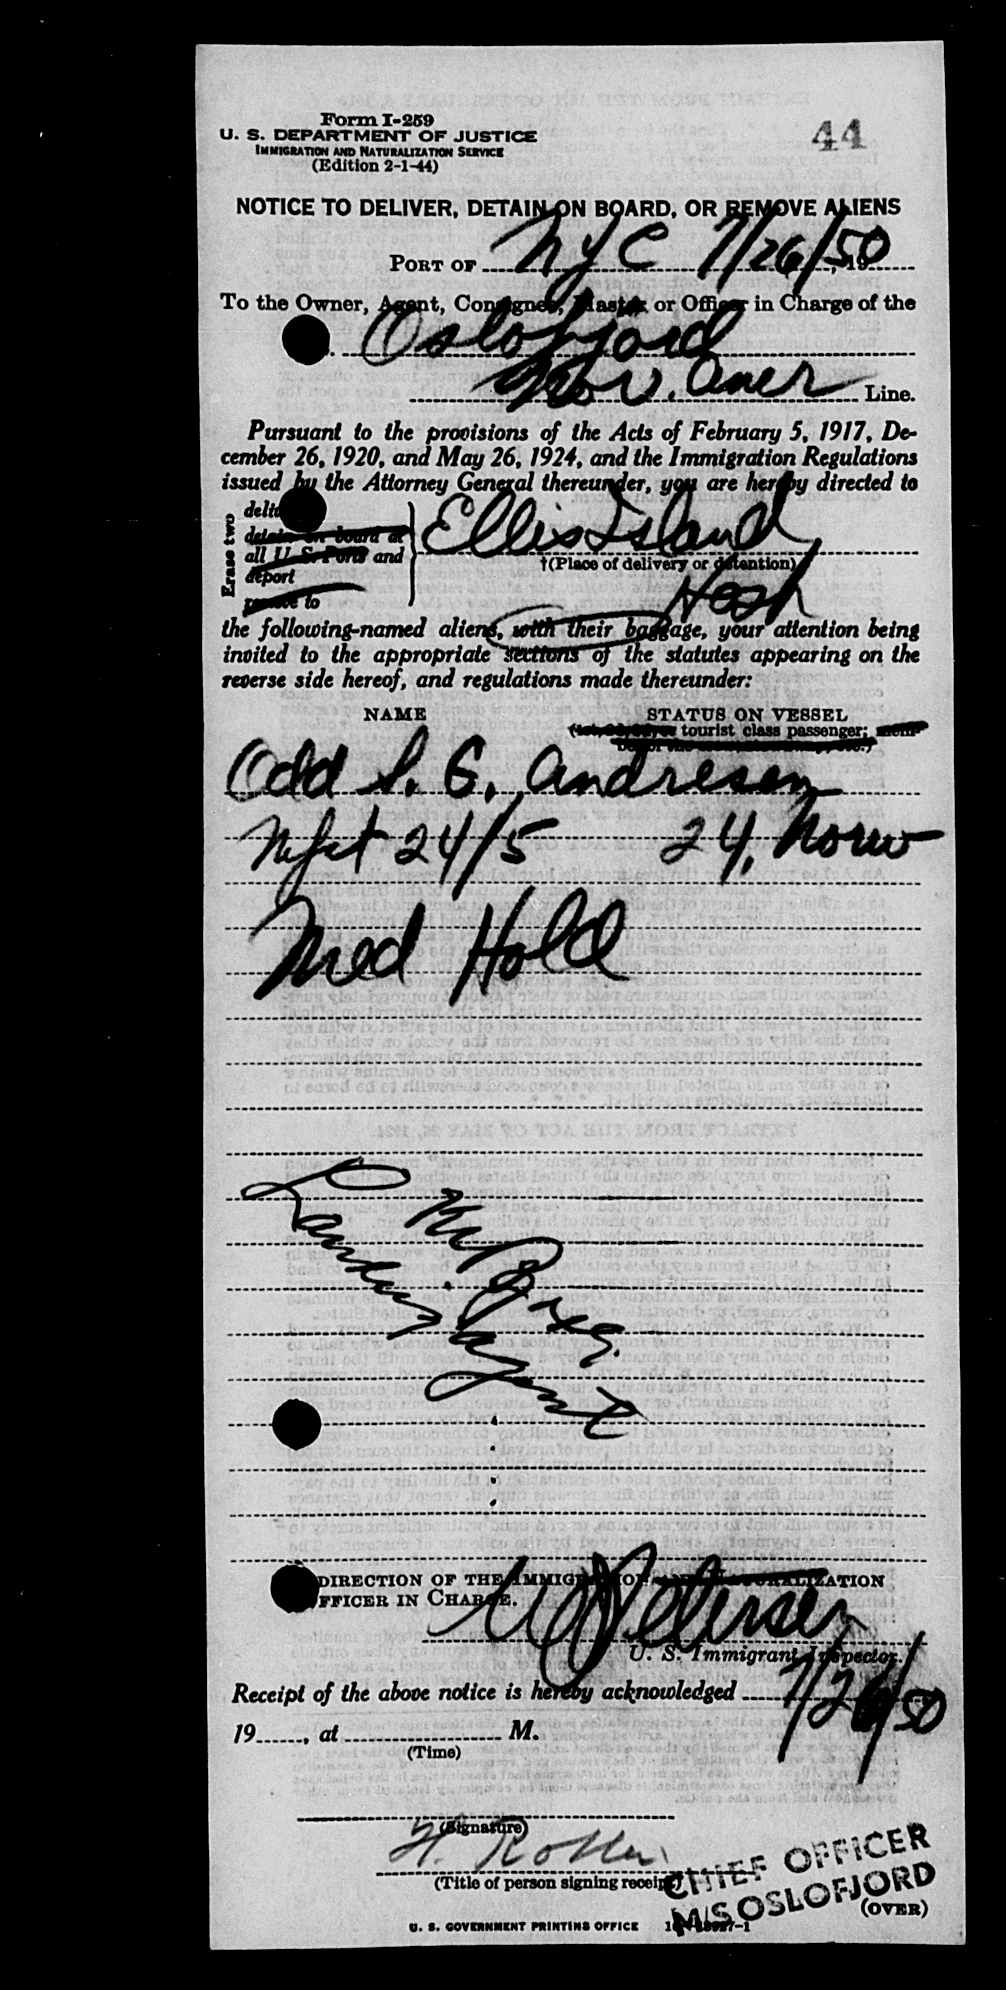 Form I-259
44
U. S. DEPARTMENT OF JUSTICE
IMMIGRATION AND NATURALIZATION SERVICE
(Edition 2-1-44)
NOTICE TO DELIVER, DETAIN ON BOARD, OR REMOVE ALIENS
PORT OF NYC 7/26/50, 19
To the Owner, Agent, Consignee, Master or Officer in Charge of the
Oslofjord
Nov. Amer Line.
Pursuant to the provisions of the Acts of February 5, 1917, De-
cember 26, 1920, and May 26, 1924, and the Immigration Regulations
issued by the Attorney General thereunder, you are hereby directed to
Erase two
deli
detain on board at
all U. S. Ports and
deport
remove to
Ellis Island
†(Place of delivery or detention)
Hosp
the following-named aliens, with their baggage, your attention being
invited to the appropriate sections of the statutes appearing on the
reverse side hereof, and regulations made thereunder:
NAME STATUS ON VESSEL
tourist class passenger; mem-
Odd S. G. Andresen
Mfst 24/5 24, Norw
Med Hold
Landing Agent
DIRECTION OF THE IMMIGRATION AND NATURALIZATION
OFFICER IN CHARGE.
Petersen
U. S. Immigrant Inspector.
Receipt of the above notice is hereby acknowledged 7/26/50
19, at M.
(Time)
(Signature)
H.
(Title of person signing receipt)
CHIEF OFFICER
M/S OSLOFJORD
(OVER)
U. S. GOVERNMENT PRINTING OFFICE